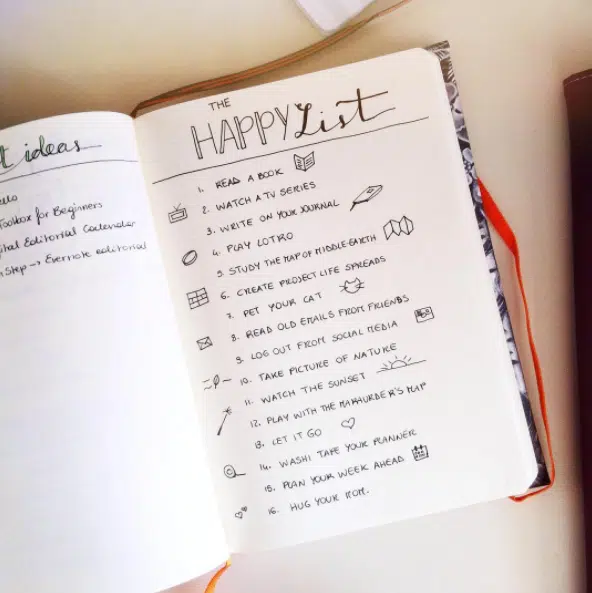 t ideas
ello
Toolbox for Beginners
gital Editorial Calendar
Step → Evernote editorial
THE
HAPPY List
1. READ A BOOK
2. WATCH A TV SERIES
3. WRITE ON YOUR JOURNAL
4. PLAY LOTRO
5. STUDY THE MAP OF MIDDLE-EARTH
6. CREATE PROJECT LIFE SPREADS
7. PET YOUR CAT
8. READ OLD EMAILS FROM FRIENDS
9. LOG OUT FROM SOCIAL MEDIA
10. TAKE PICTURE OF NATURE
11. WATCH THE SUNSET
12. PLAY WITH THE MARAUDER'S MAP
13. LET IT GO
14. WASHI TAPE YOUR PLANNER
15. PLAN YOUR WEEK AHEAD
16. HUG YOUR MOM.